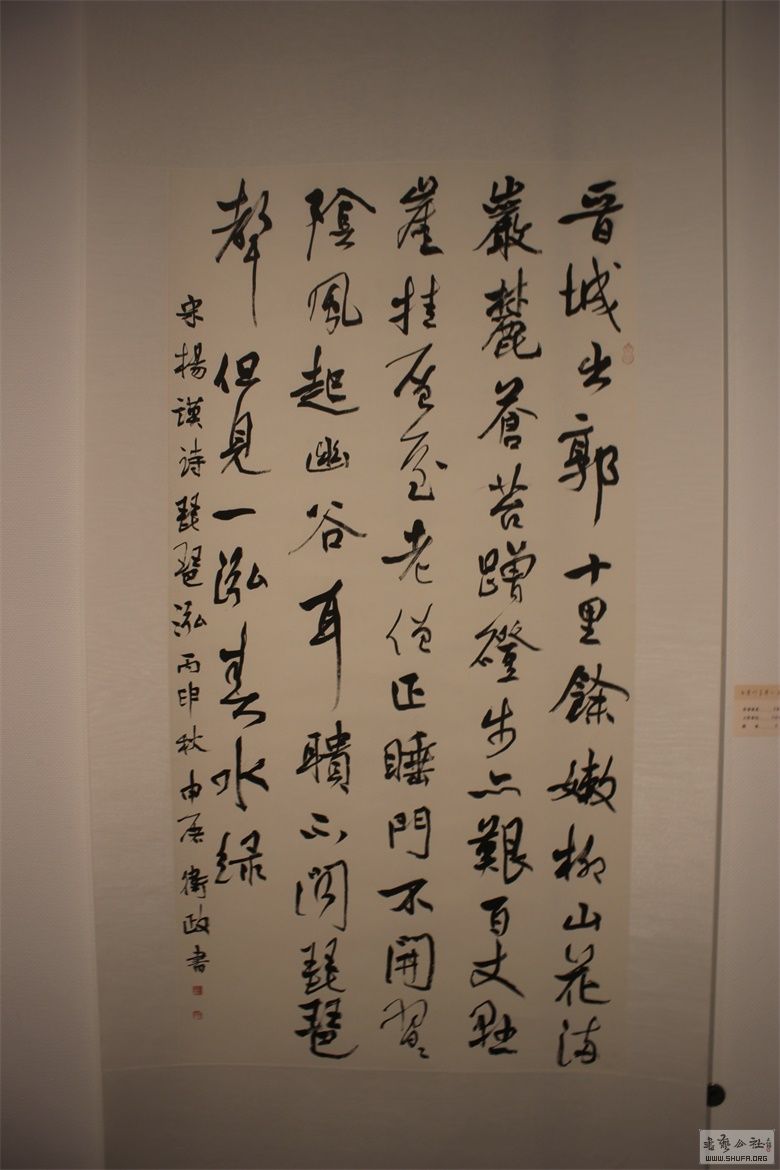 晋城出郭十里餘嫩柳山花满
巖麓蒼苔蹭磴步亦艱百丈懸
崖挂屋老僧正睡門不開習々
陰風起幽谷耳聵不闻琵琶
聲但見一泓春水绿
宋楊謨诗琵琶泓丙申秋申屠衛政書
WWW.SHUFA.ORG